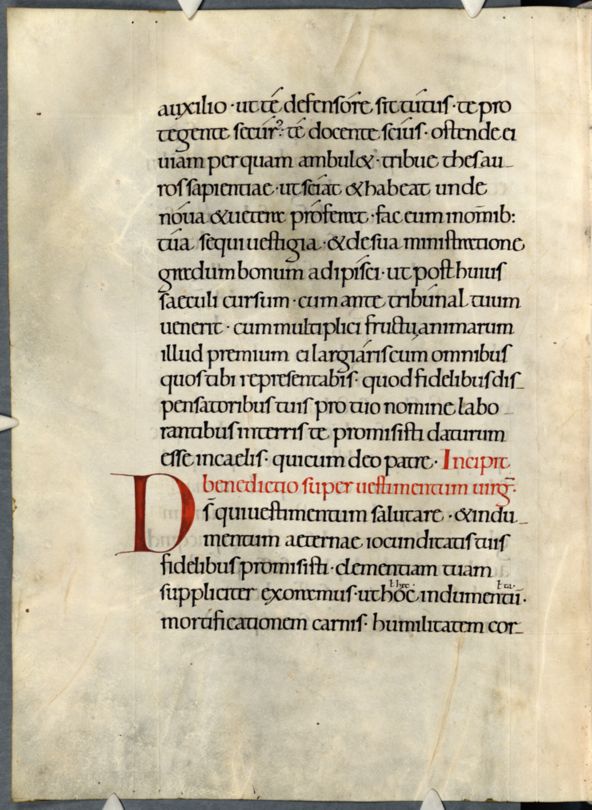 auxilio · ut té defensóre sit tutus · te pro
tegente secur᷒ · té docente scius · ostende ei
uiam per quam ambulet · tribue thesau-
ros sapientiae · ut sciat & habeat unde
nóua & uetera proferret · fac eum in om̅ib:
tua sequi uestigia · & de sua ministratione
gradum bonum adipisci · ut post huius
saeculi cursum · cum ante tribunal tuum
uenerit · cum multiplici fructu animarum
illud premium ei largiáris cum omnibus
quos tibi representabis · quod fidelibus dis-
pensatoribus tuis pro tuo nomine labo-
rantibus in terris te promisisti daturum
esse in caelis · qui cum deo patre · Incipit
benedictio super uestimentum uirg̅ ·
Ds̅ qui uestimentum salutare · & indu-
mentum aeternae iocunditatis tuis
fidelibus promisisti · clementiam tuam
suppliciter exoramus · ut hoc indumentū ·
mortificationem carnis · humilitatem cor-